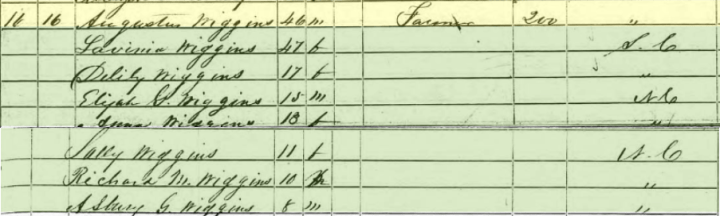 16 16 Augustus Wiggins 46 m Farmer 200 "
Lavinia Wiggins 47 f S. C
Delily Wiggins 17 f "
Elijah G. Wiggins 15 m N. C
Anna Wiggins 13 f "
Sally Wiggins 11 f N. C
Richard M. Wiggins 10 m "
Asbury G. Wiggins 8 m "